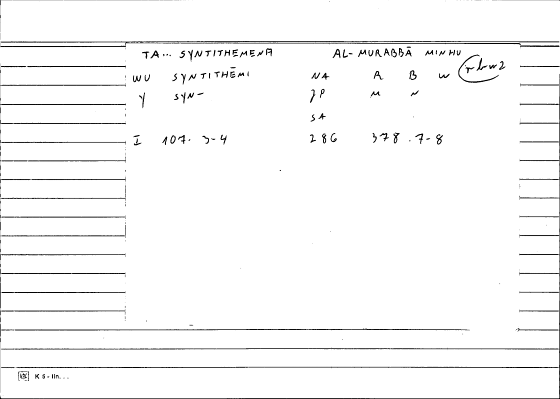 TA... SYNTITHEMENA AL-MURABBĀ MINHU
WU SYNTITHĒMI NA R B W rbw2
Y SYN- JP M N
SA
I 107. 3-4 286 378.7-8
K 5 - lin...